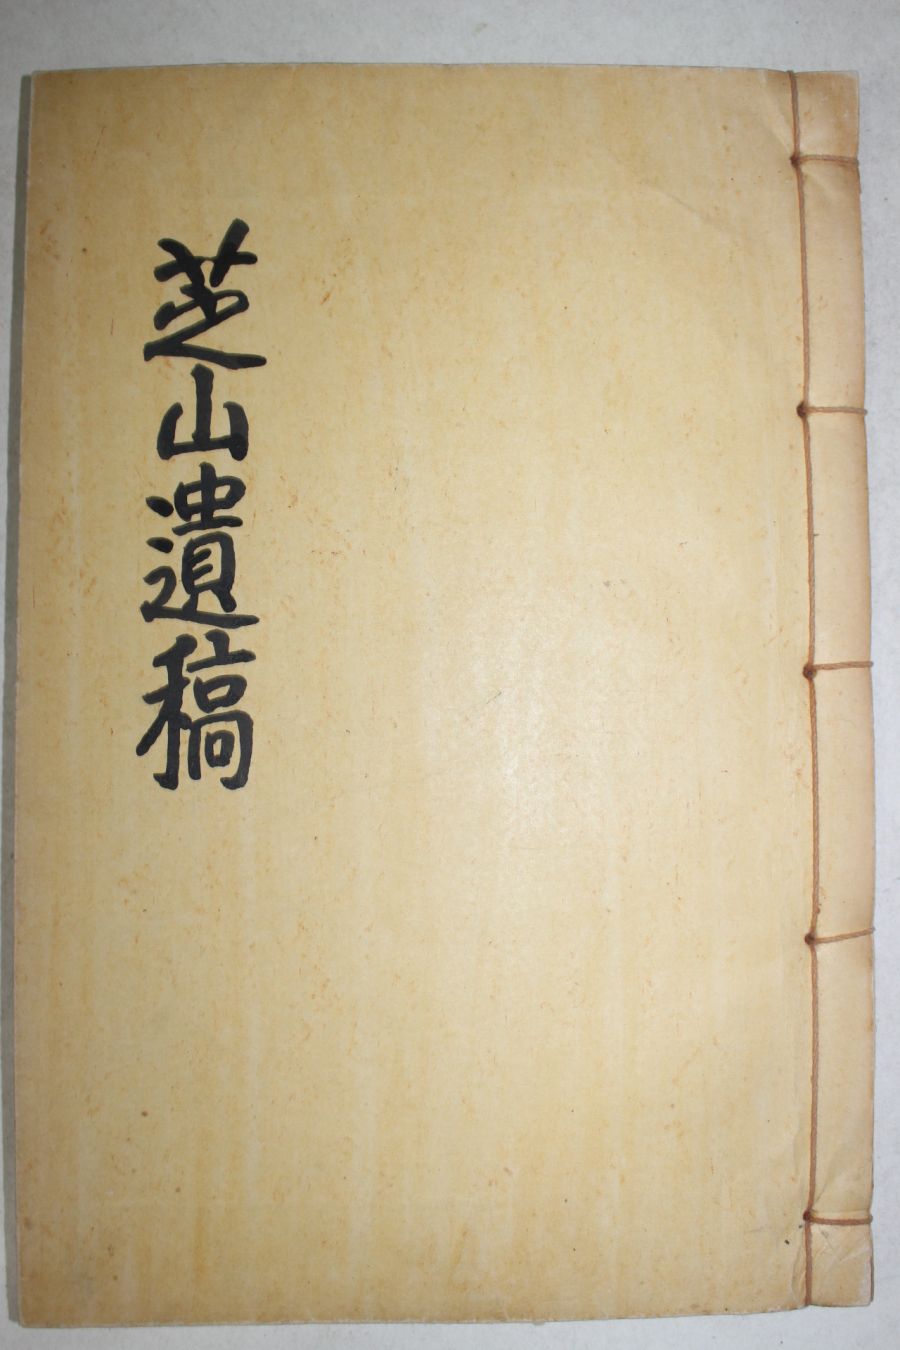 芝山遺稿